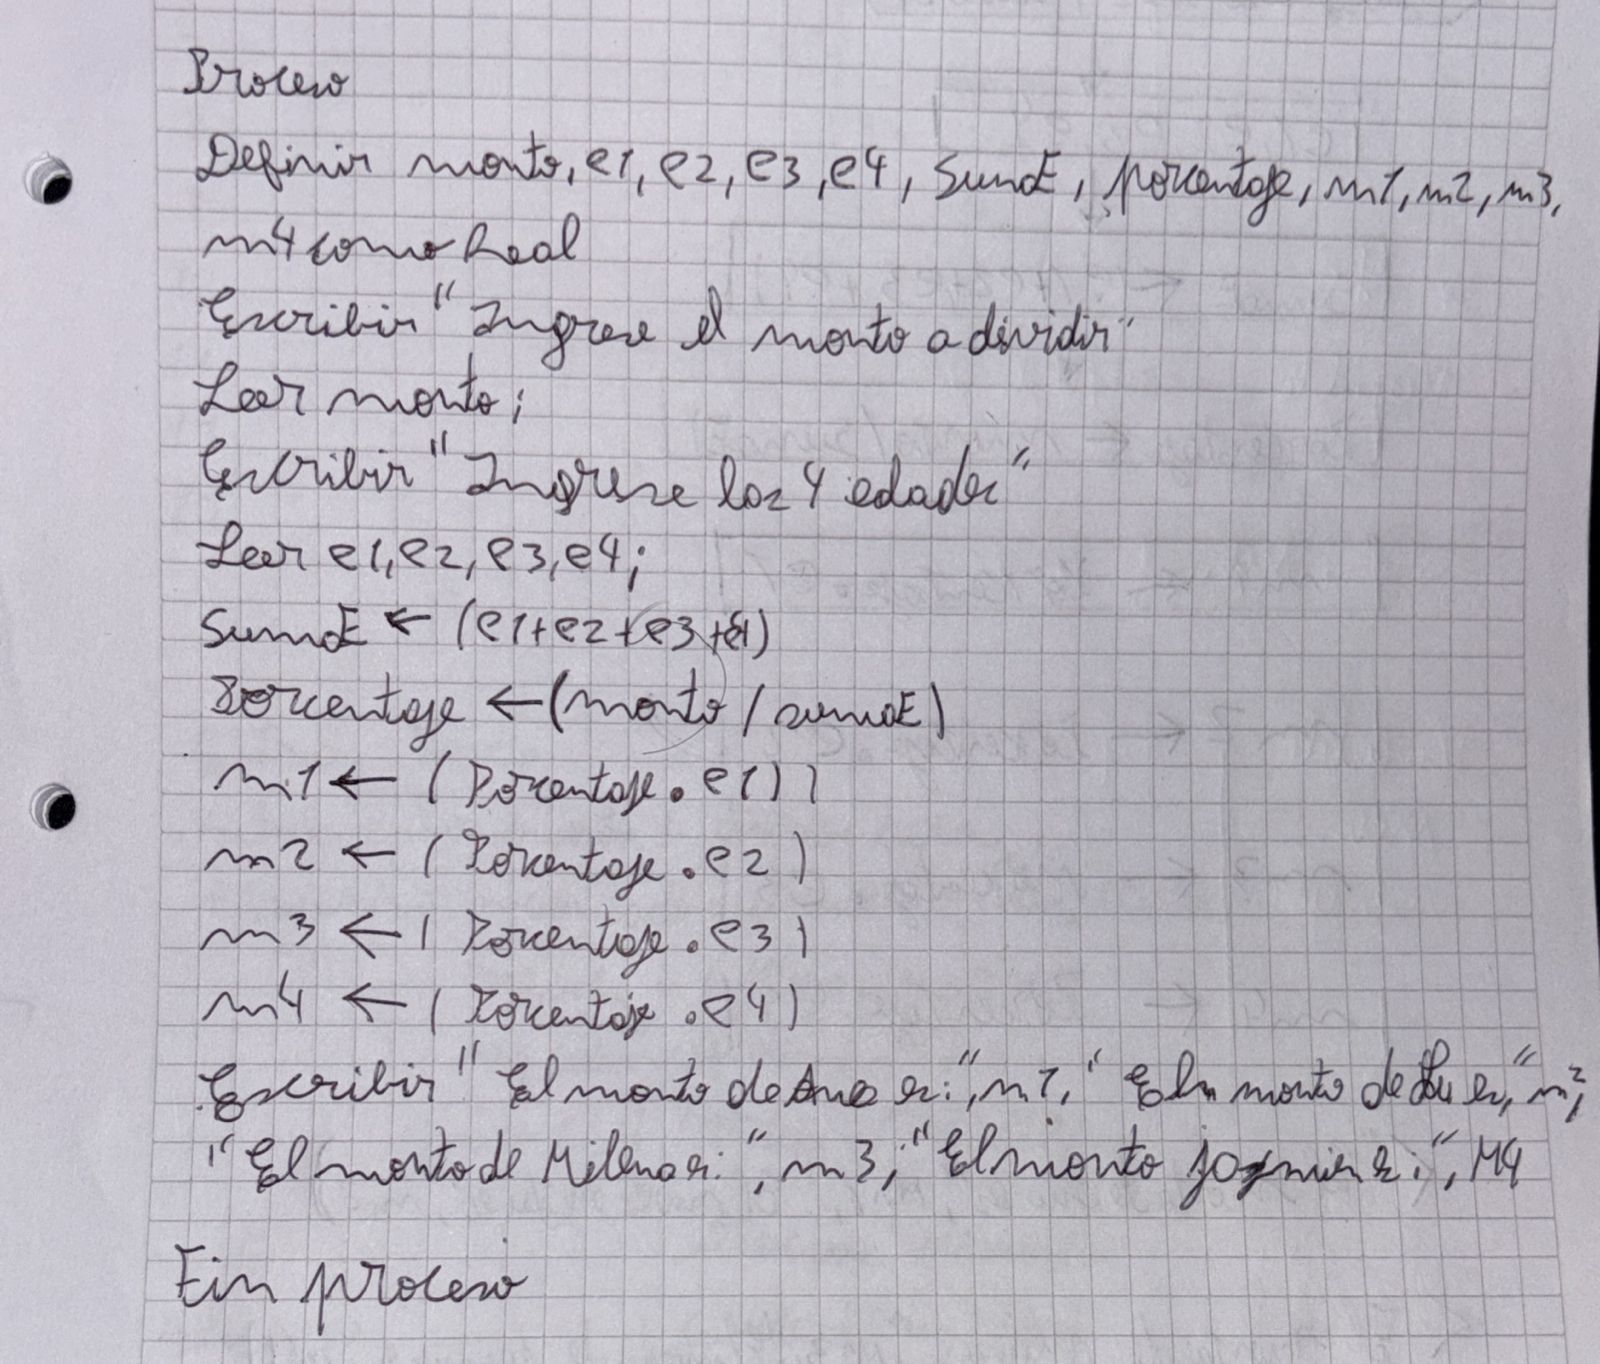 Proceso
Definir monto, e1, e2, e3, e4, SumaE, porcentaje, m1, m2, m3,
m4 como Real
Escribir "Ingrese el monto a dividir"
Leer monto;
Escribir "Ingrese las 4 edades"
Leer e1, e2, e3, e4;
SumaE ← (e1+e2+e3+e4)
Porcentaje ← (monto / sumaE)
m1 ← (Porcentaje . e1))
m2 ← (Porcentaje . e2)
m3 ← (Porcentaje . e3)
m4 ← (Porcentaje . e4)
Escribir "El monto de Ana es:", m1, "El monto de Lu es," m2,
"El monto de Milena es:", m3; "El monto Jazmin es:", M4
Fin proceso